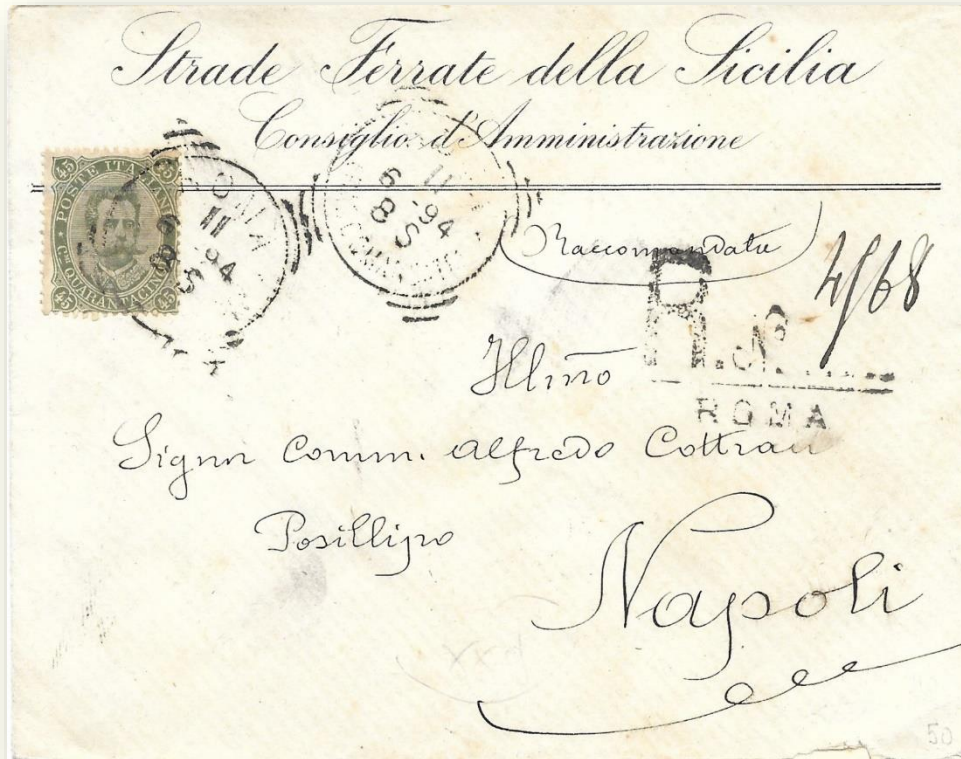 Strade Ferrate della Sicilia
Consiglio d'Amministrazione
45 45
POSTE ITALIANE
Cmi QUARANTACINQUE
45 45
ROMA
6 11 94
8 S
6 11 94
8 S
Raccomandata
R. N.
4568
ROMA
Illmo
Signor Comm. Alfredo Cottrau
Posillipo
Napoli
50